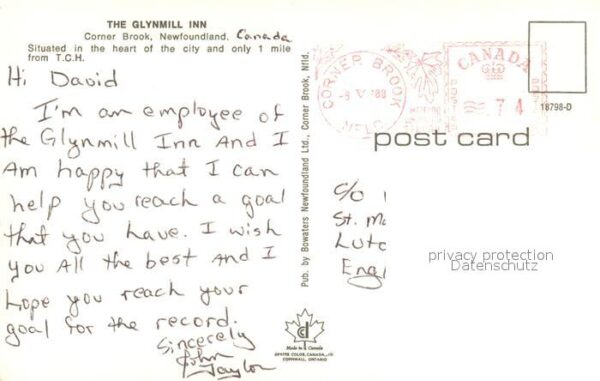 THE GLYNMILL INN
Corner Brook, Newfoundland, Canada
Situated in the heart of the city and only 1 mile
from T.C.H.
Hi David
I'm an employee of
the Glynmill Inn And I
Am happy that I can
help you reach a goal
that you have. I wish
you All the best and I
hope you reach your
goal for the record.
Sincerely
John
Taylor
Pub. by Bowaters Newfoundland Ltd., Corner Brook, Nfld.
CORNER BROOK
NFLD
CANADA
74
18798-D
post card
c/o
St. M
Luto
Engl
privacy protection
Datenschutz
Made in Canada
COLOR, CANADA,
CORNWALL, ONTARIO